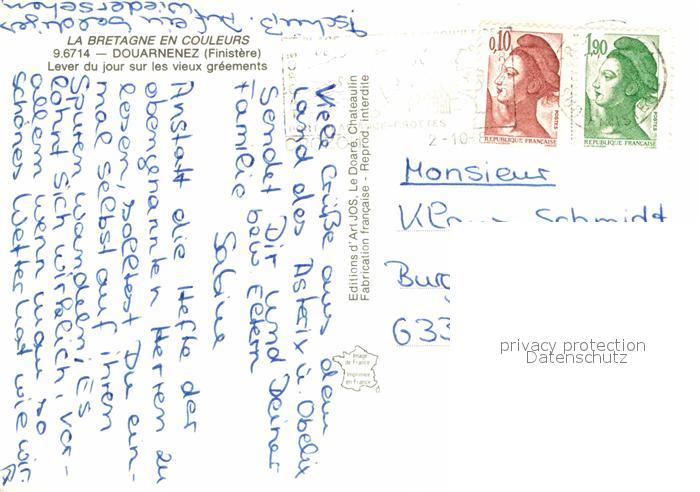 LA BRETAGNE EN COULEURS
9.6714 — DOUARNENEZ (Finistère)
Lever du jour sur les vieux gréements
Viele Grüße aus dem
Land des Asterix u. Obelix
sendet Dir und Deiner
Familie bzw Eltern
Sabine
Anstatt die Hefte der
obengenannten Herren zu
lesen, solltest Du ein-
mal selbst auf ihren
Spuren wandeln! Es
lohnt sich wirklich, vor-
allem wenn man so
schönes Wetter hat wie wir
Tschüß. Auf ein baldiges
Wiedersehen
Editions d'Art JOS, Le Doaré, Chateaulin
Fabrication française - Reprod. interdite
Image
de France
Imprimée
en France
0,10
POSTES
REPUBLIQUE FRANÇAISE
1,90
POSTES
REPUBLIQUE FRANÇAISE
GROTTES
2-10-
Monsieur
Schmidt
Burg
633
privacy protection
Datenschutz